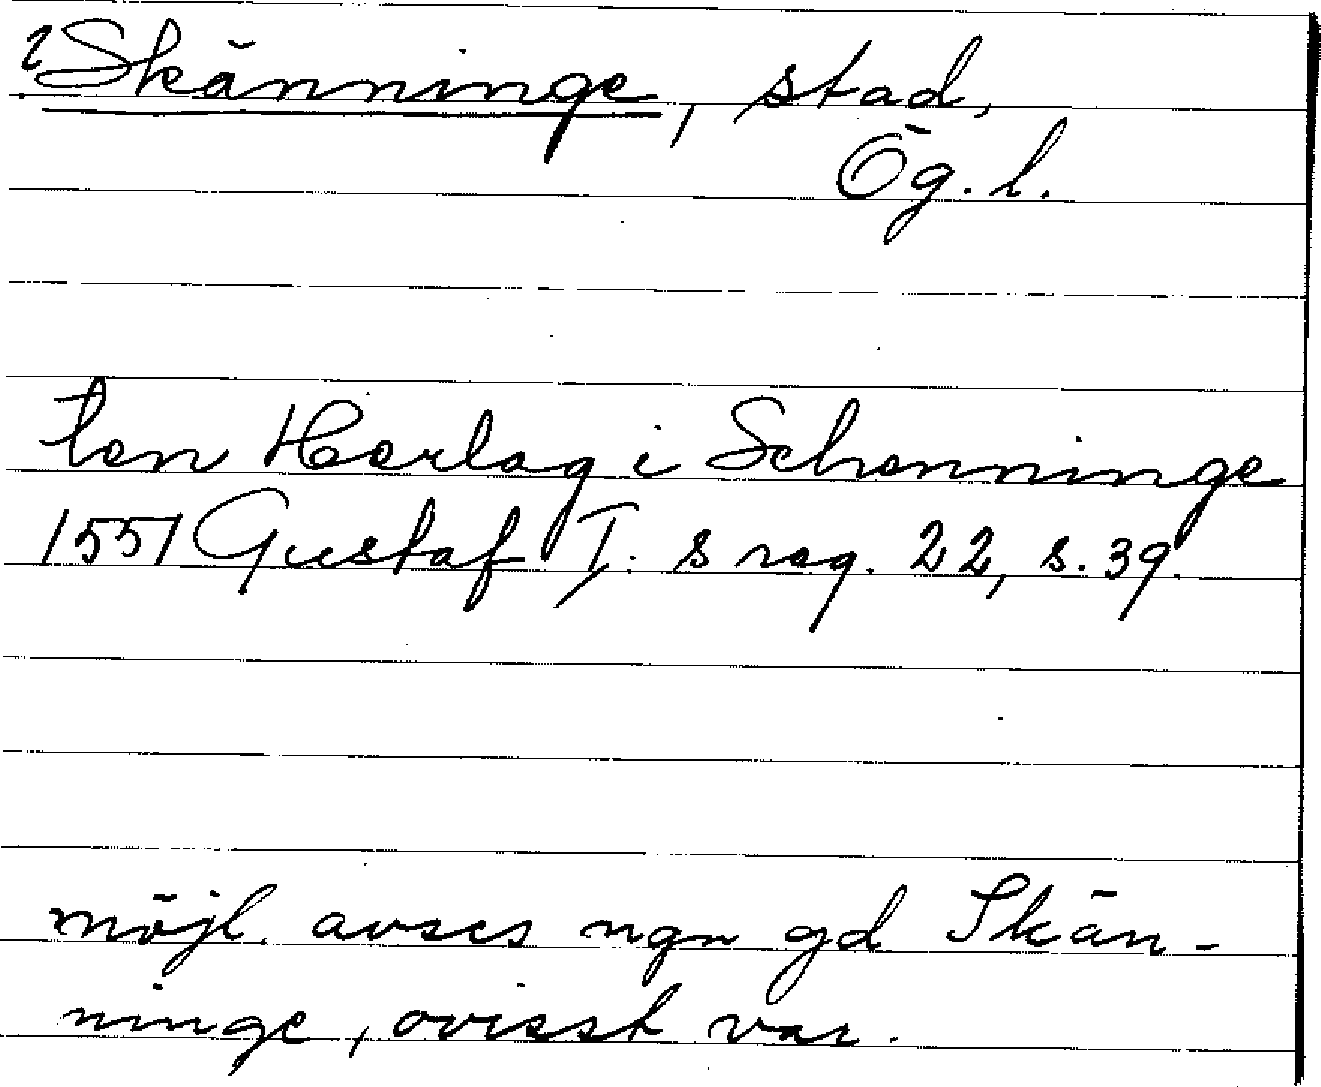 ?Skänninge, stad,
Ög. l.
ten Herlog i Schenninge
1551 Gustaf I: s reg. 22, s. 39.
möjl. avses ngn gd Skän-
ninge, ovisst var.